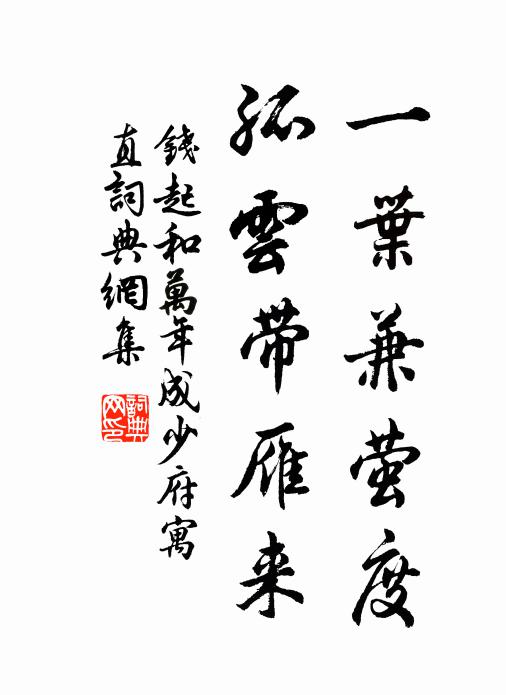 一葉兼螢度
孤雲帶雁来
錢起和萬年成少府寓
直詞典網集
詞典
网印